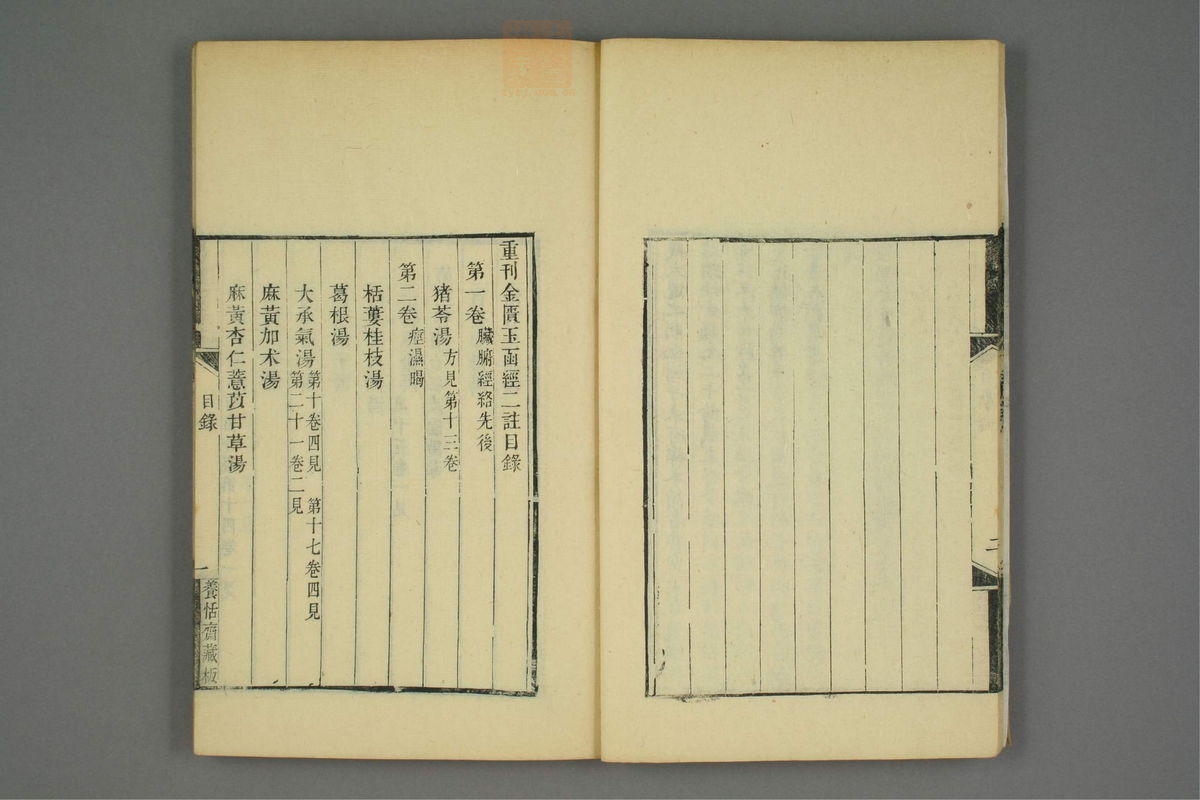 重刊金匱玉函經二註目錄
第一卷 臟腑經絡先後
猪苓湯 方見第十三卷
第二卷 痙濕暍
栝蔞桂枝湯
葛根湯
大承氣湯 第十卷四見 第十七卷四見
第二十一卷二見
麻黃加术湯
麻黃杏仁薏苡甘草湯
目錄
一
養恬齋藏板
二